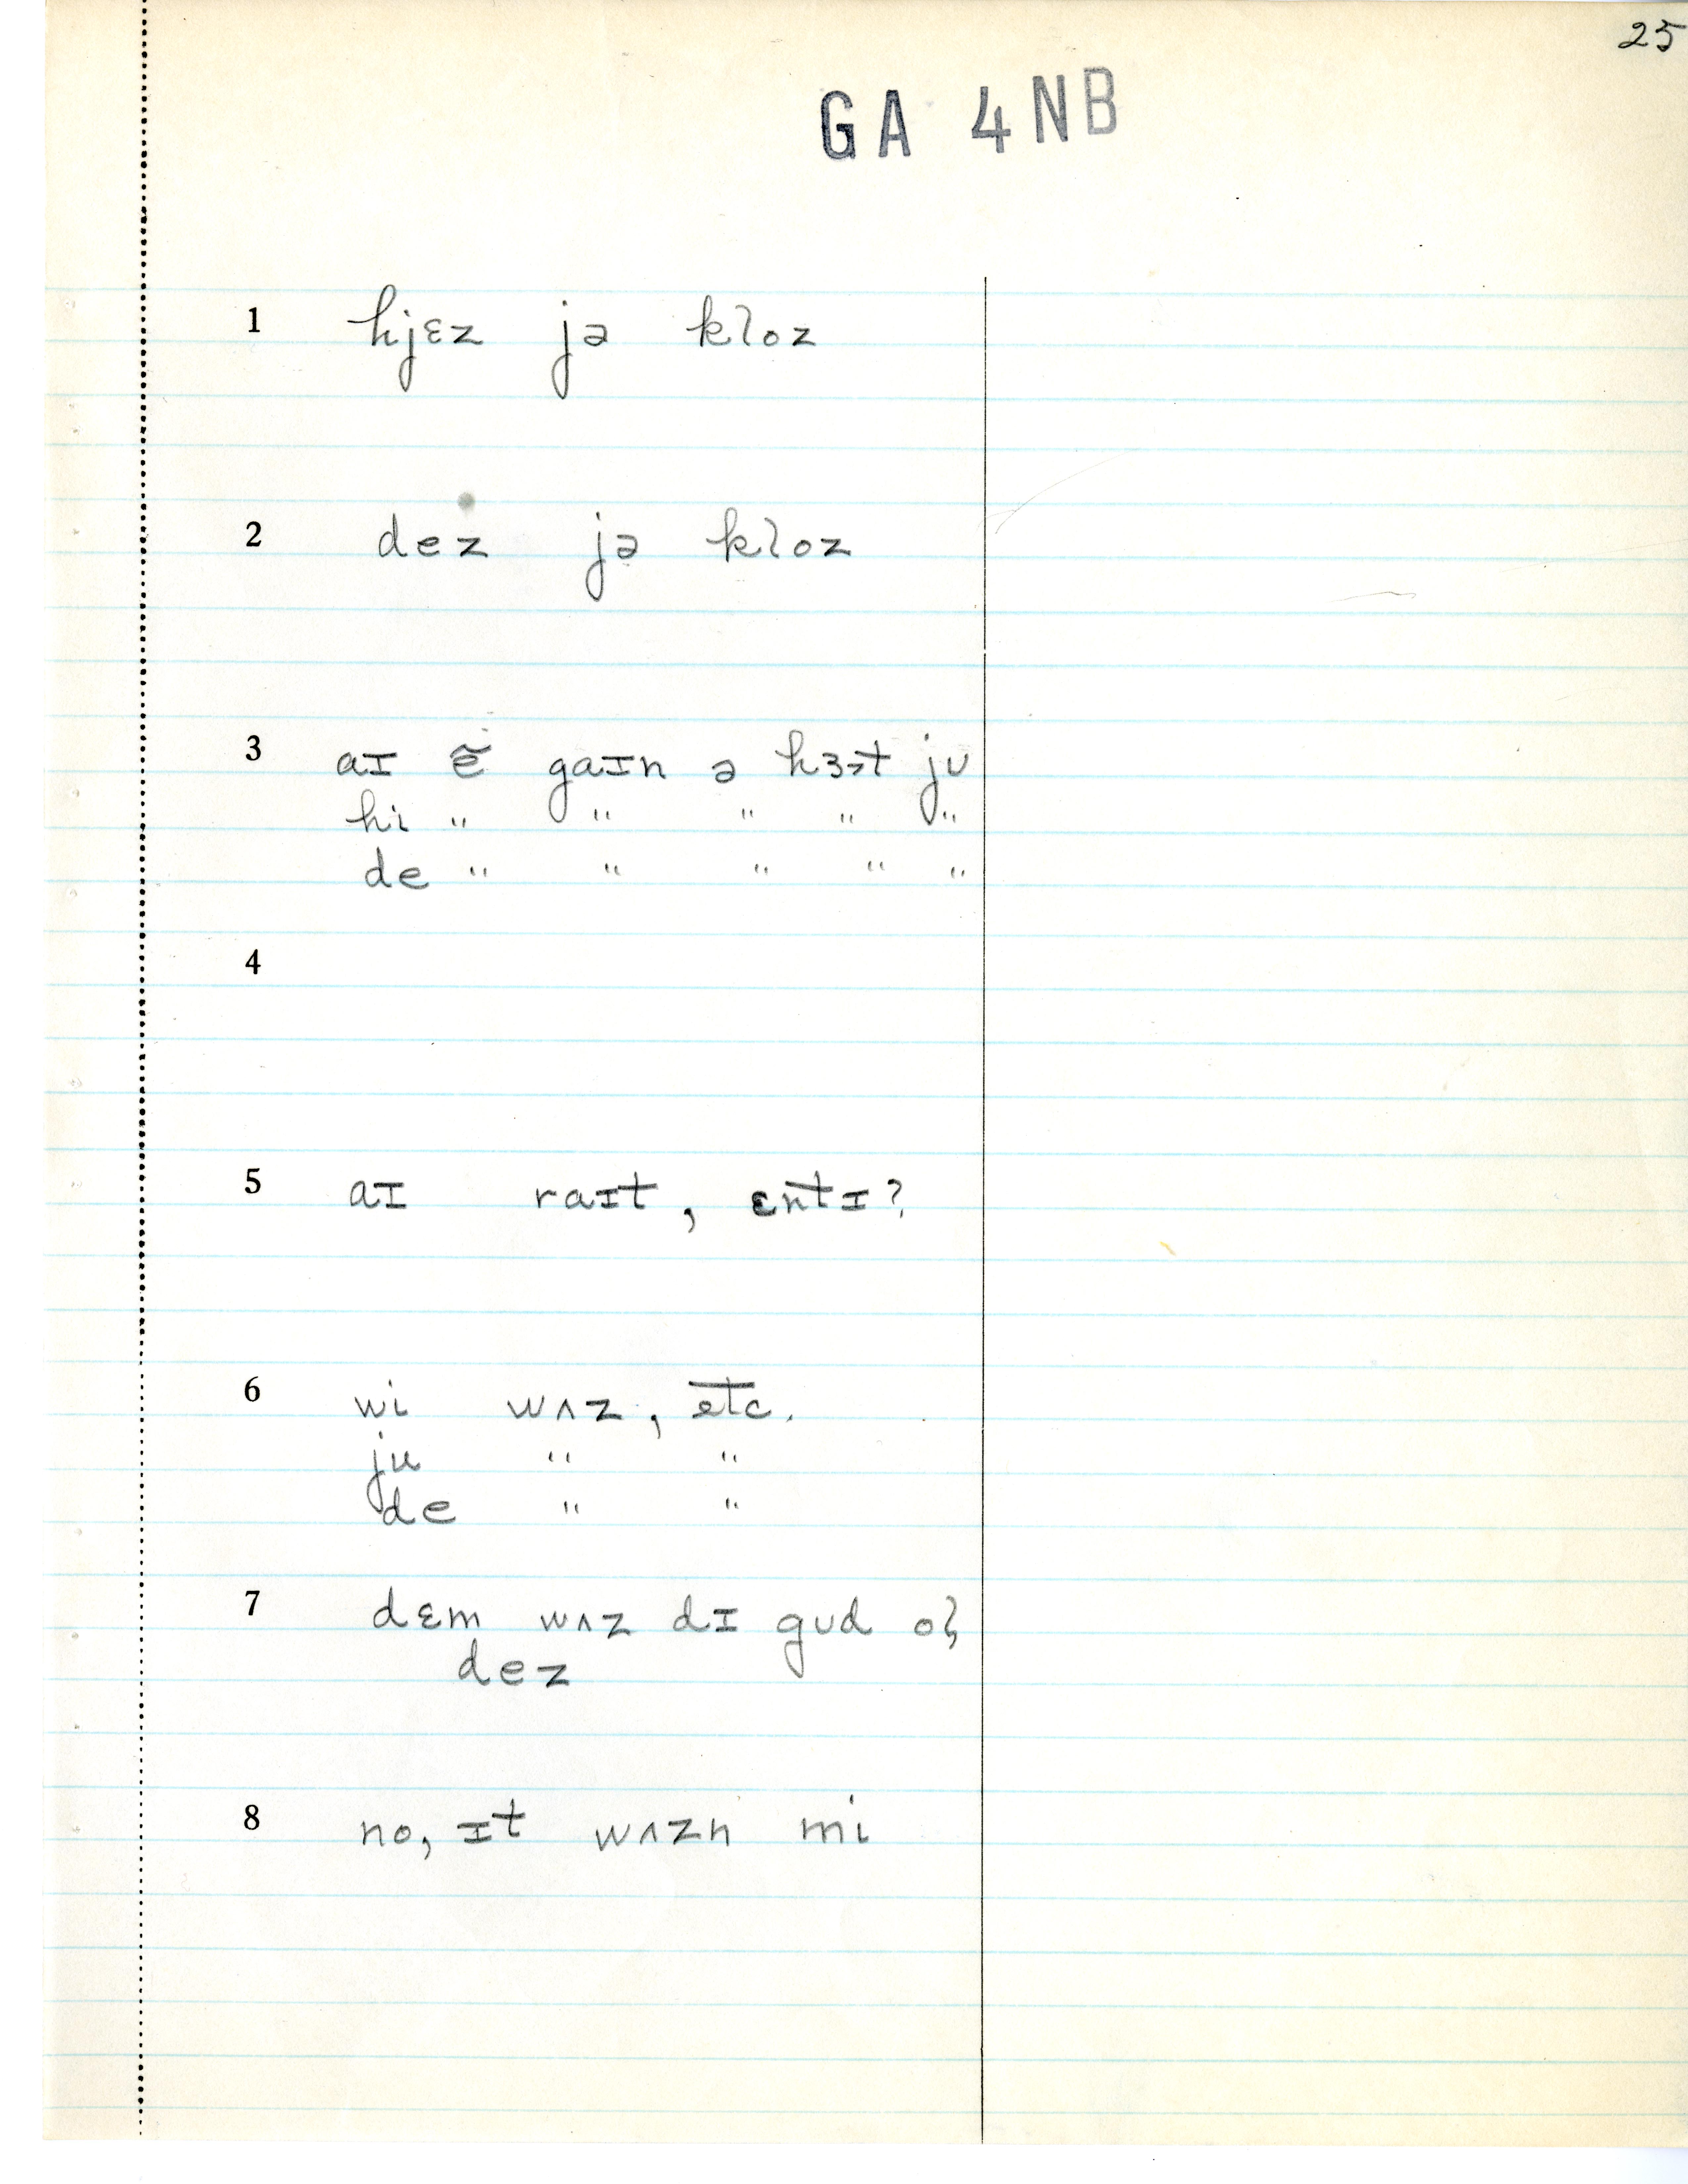 25
GA 4NB
1 hjɛz jə kloz
2 dez jə kloz
3 aɪ ẽ gaɪn ə hɜt ju
hi " " " " "
de " " " " "
4
5 aɪ raɪt, ɛntɪ?
6 wi wʌz, etc.
ju " "
de " "
7 dɛm wʌz dɪ gud
dez
8 no, ɪt wʌzn mi